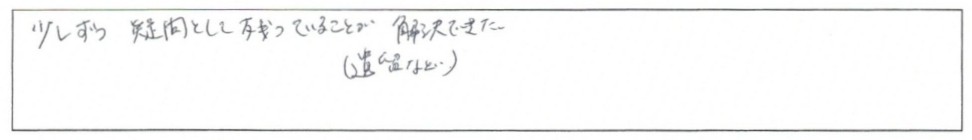 少しずつ 疑問として残っていることが 解決できた
(遺留など)